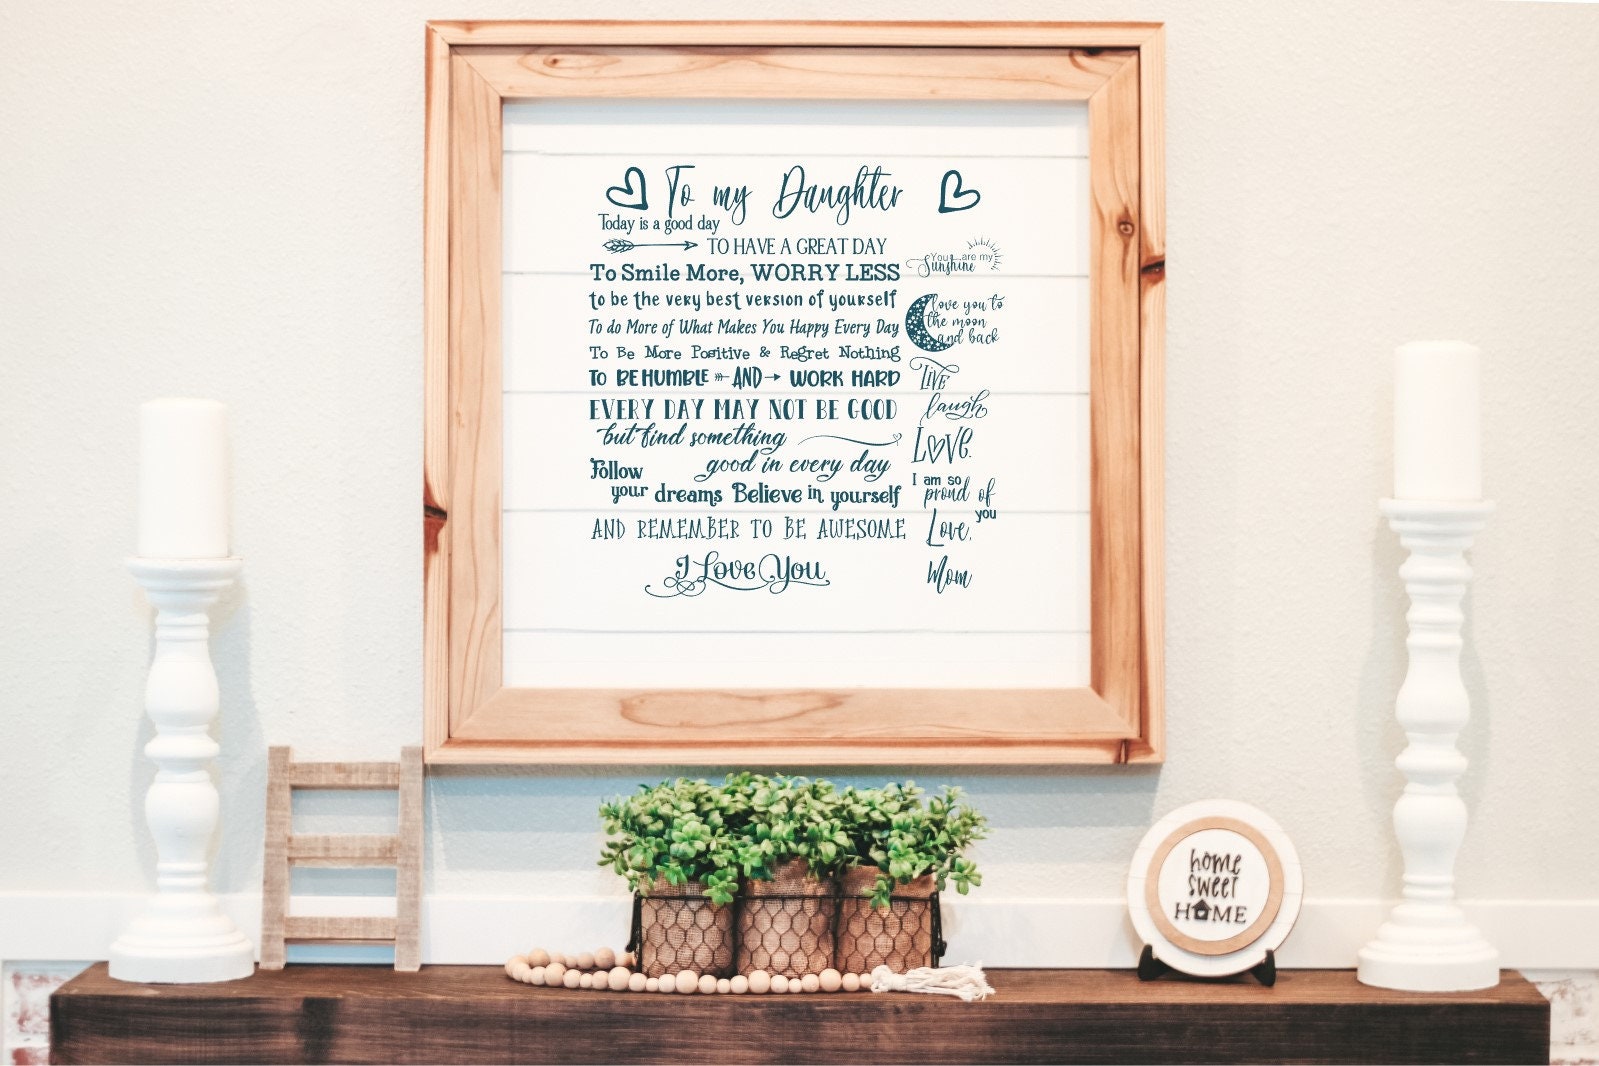 To my Daughter
Today is a good day
TO HAVE A GREAT DAY
To Smile More, WORRY LESS
to be the very best version of yourself
To do More of What Makes You Happy Every Day
To Be More Positive & Regret Nothing
TO BE HUMBLE AND WORK HARD
EVERY DAY MAY NOT BE GOOD
but find something
good in every day
Follow
your dreams Believe in yourself
AND REMEMBER TO BE AWESOME
I Love You
You are my
Sunshine
love you to
the moon
and back
LIVE
laugh
LOVE.
I am so
proud of
you
Love,
Mom
home
sweet
HOME